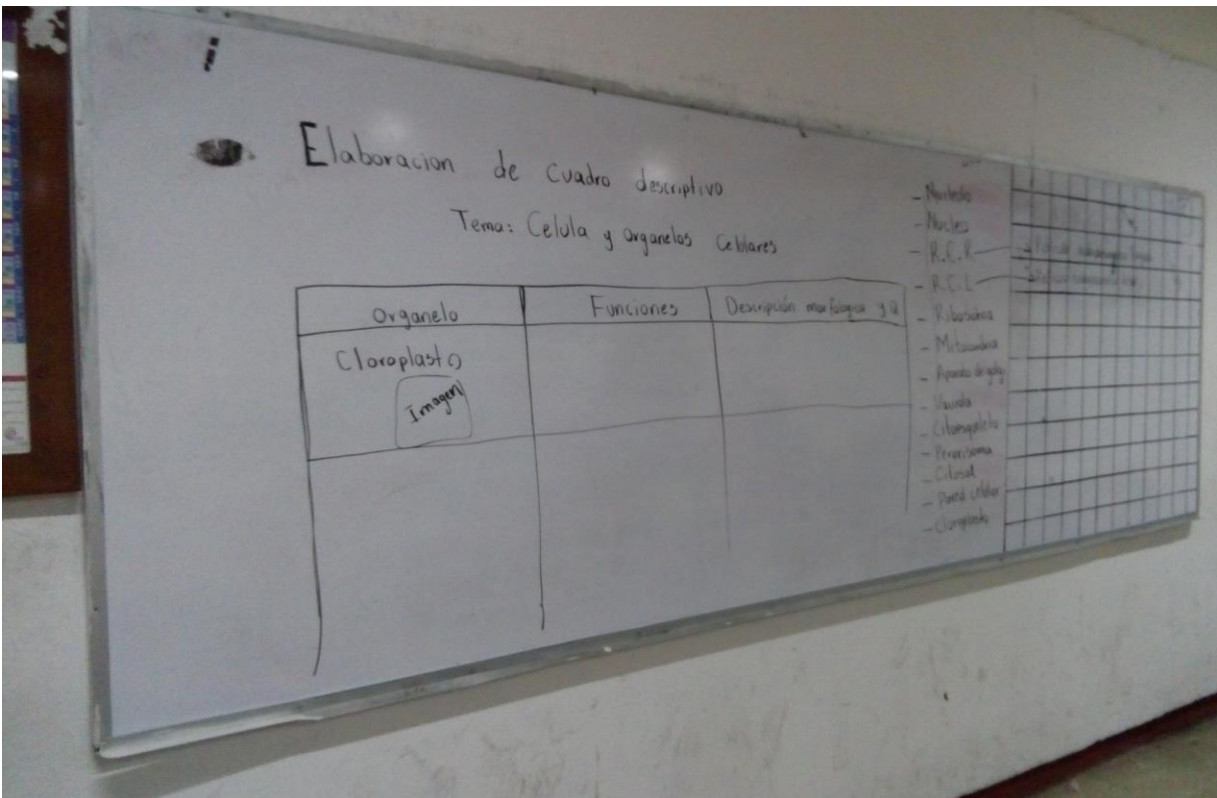 Elaboracion de cuadro descriptivo
Tema: Celula y organelos Celulares
Organelo Funciones Descripción morfologica y
Cloroplasto
Imagen
- Nucleolo
- Nucleo
- R.E.R
- R.E.L
- Ribosoma
- Mitocondria
- Aparato de golgi
- Vacuola
- Citoesqueleto
- Peroxisoma
- Citosol
- Pared celular
- Cloroplasto